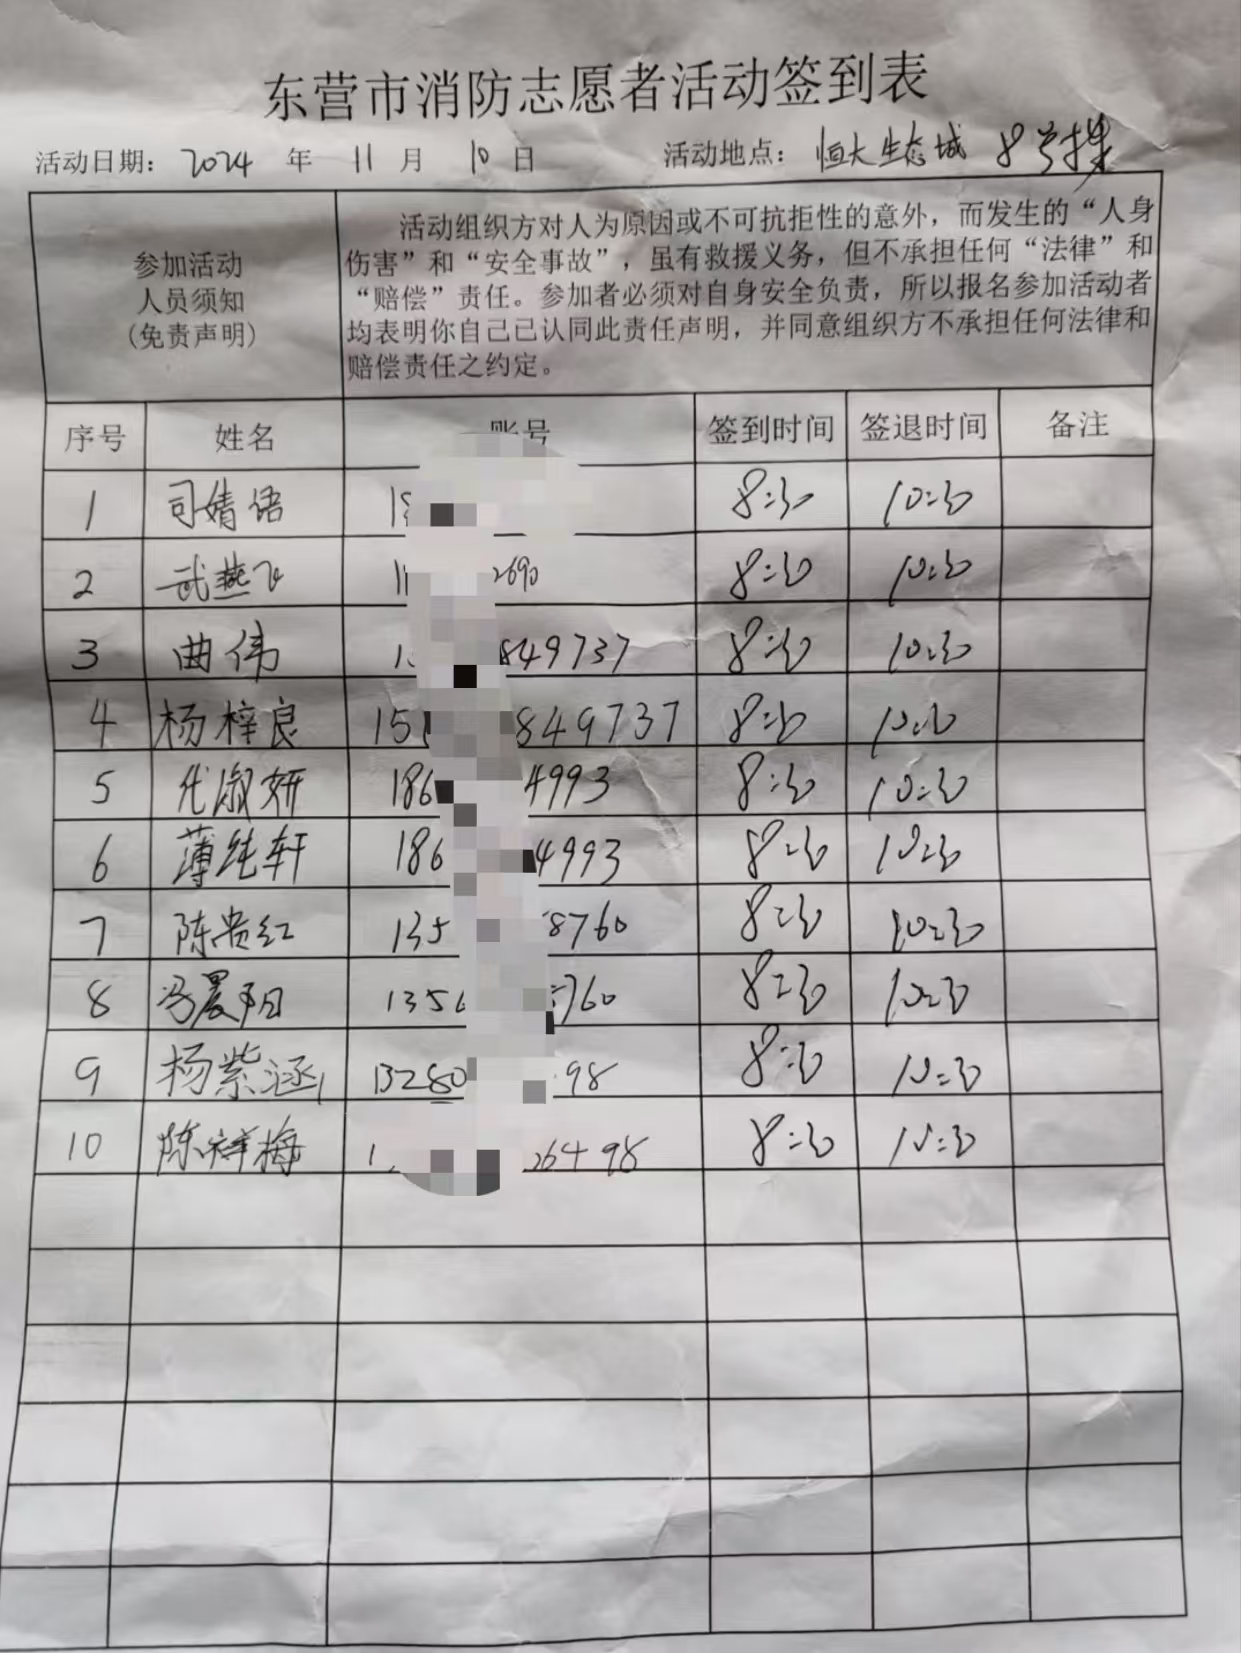 东营市消防志愿者活动签到表
活动日期：2024 年 11 月 10 日 活动地点：恒大生态城 8号楼
参加活动
人员须知
(免责声明)
活动组织方对人为原因或不可抗拒性的意外，而发生的“人身
伤害”和“安全事故”，虽有救援义务，但不承担任何“法律”和
“赔偿”责任。参加者必须对自身安全负责，所以报名参加活动者
均表明你自己已认同此责任声明，并同意组织方不承担任何法律和
赔偿责任之约定。
序号 姓名 账号 签到时间 签退时间 备注
1 司婧语 8:30 10:30
2 武燕飞 2690 8:30 10:30
3 曲伟 849737 8:30 10:30
4 杨梓良 15 849737 8:30 10:30
5 代淑妍 186 4993 8:30 10:30
6 薄纯轩 186 4993 8:30 10:30
7 陈贵红 135 8760 8:30 10:30
8 冯晨阳 1356 760 8:30 10:30
9 杨紫涵 13280 98 8:30 10:30
10 陈祥梅 1 26498 8:30 10:30